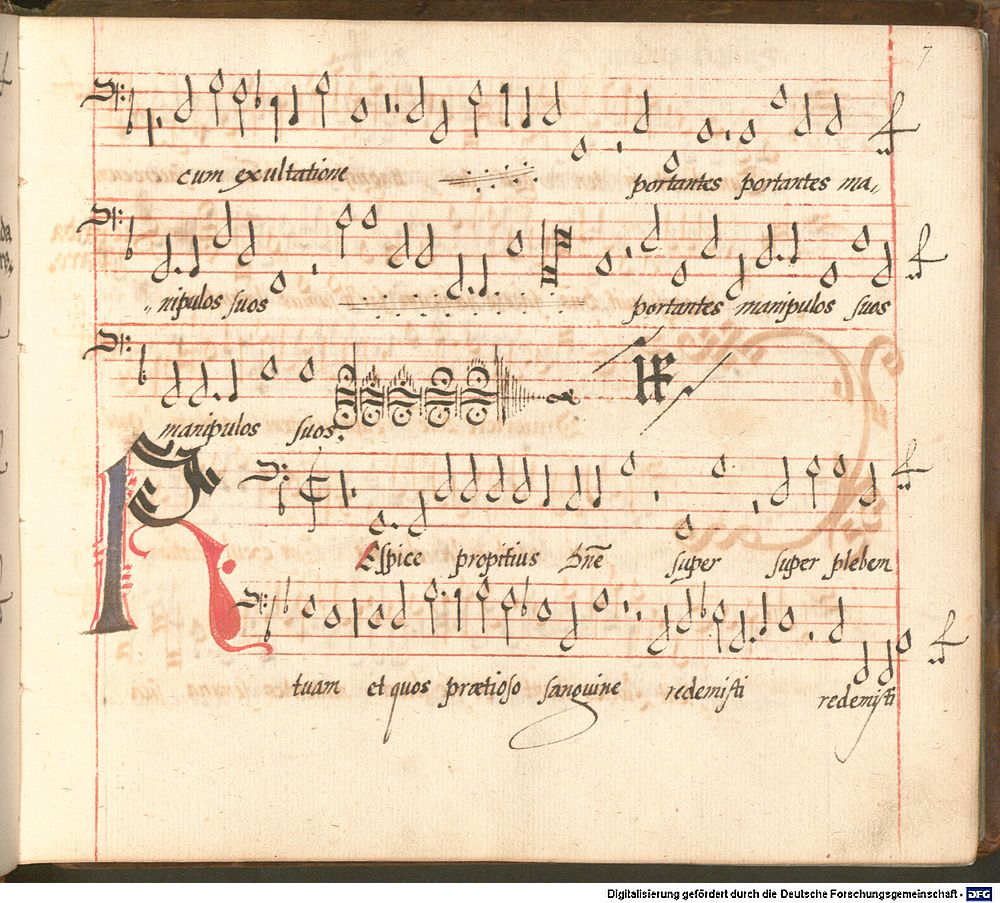 7
cum exultatione portantes portantes ma„
„nipulos suos portantes manipulos suos
manipulos suos.
REspice propitius Dñe super super plebem
tuam et quos prætioso sanguine redemisti redemisti
Digitalisierung gefördert durch die Deutsche Forschungsgemeinschaft - DFG